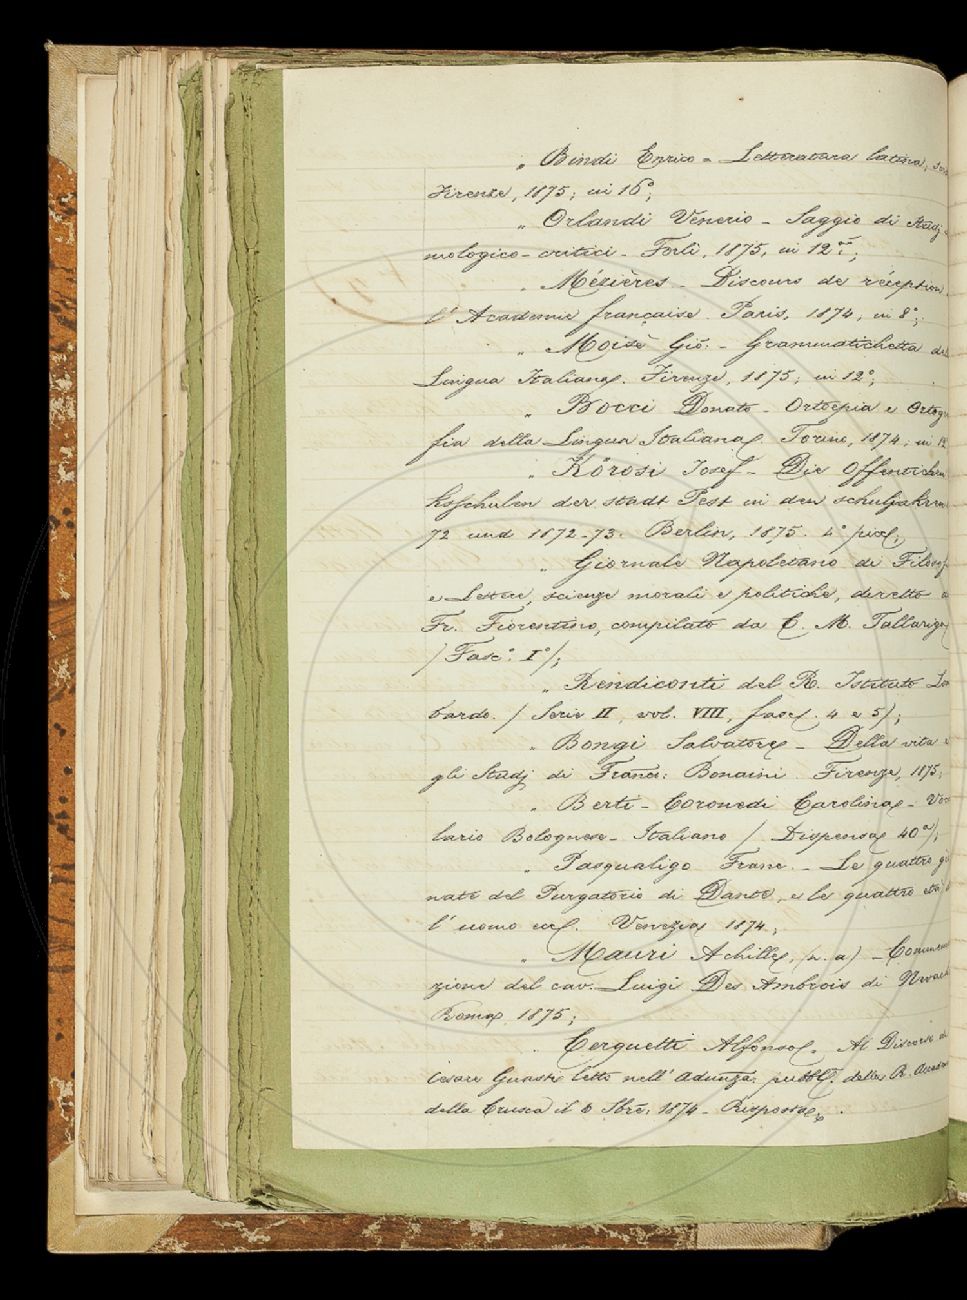 " Bindi Enrico - Letteratura latina,
Firenze, 1875; in 16°;
" Orlandi Venerio - Saggio di Studj
mologico-critici - Forlì, 1875, in 12°;
" Mézières - Discours de réception
l'Academie française. Paris, 1874, in 8°;
" Moisè Gio. - Grammatichetta del
Lingua Italiana. Firenze, 1875; in 12°;
" Bocci Donato - Ortoepia e Ortogr
fia della Lingua Italiana. Torino, 1874; in 12
" Kőrösi Josef - Die Offentichen
der stadt Pest in den schuljahren
72 und 1872-73. Berlin, 1875. 4° picc;
" Giornale Napoletano di Filosof
e Lettere, scienze morali e politiche, diretto a
Fr. Fiorentino, compilato da C. M. Tallarigo
/ Fasc°. I°/;
" Rendiconti del R. Istituto Lo
bardo. / Serie II, vol. VIII, fasc. 4 e 5/;
" Bongi Salvatore - Della vita e
gli Studj di Franc: Bonaini. Firenze, 1875;
" Berti - Coronedi Carolina - Voc
lario Bolognese - Italiano / Dispensa 40ª/;
" Pasqualigo Franc. - Le quattro gi
nate del Purgatorio di Dante, e le quattro età
l'uomo ecc. Venezia 1874;
" Mauri Achille, (n. a) - Commemo
zione del cav. Luigi Des Ambrois di Nevach
Roma 1875;
" Cerquetti Alfonso. Al Discorso di
Cesare Guasti letto nell'Adunza. pubbl. della R. Accadem
della Crusca il 6 7bre. 1874 - Risposta;